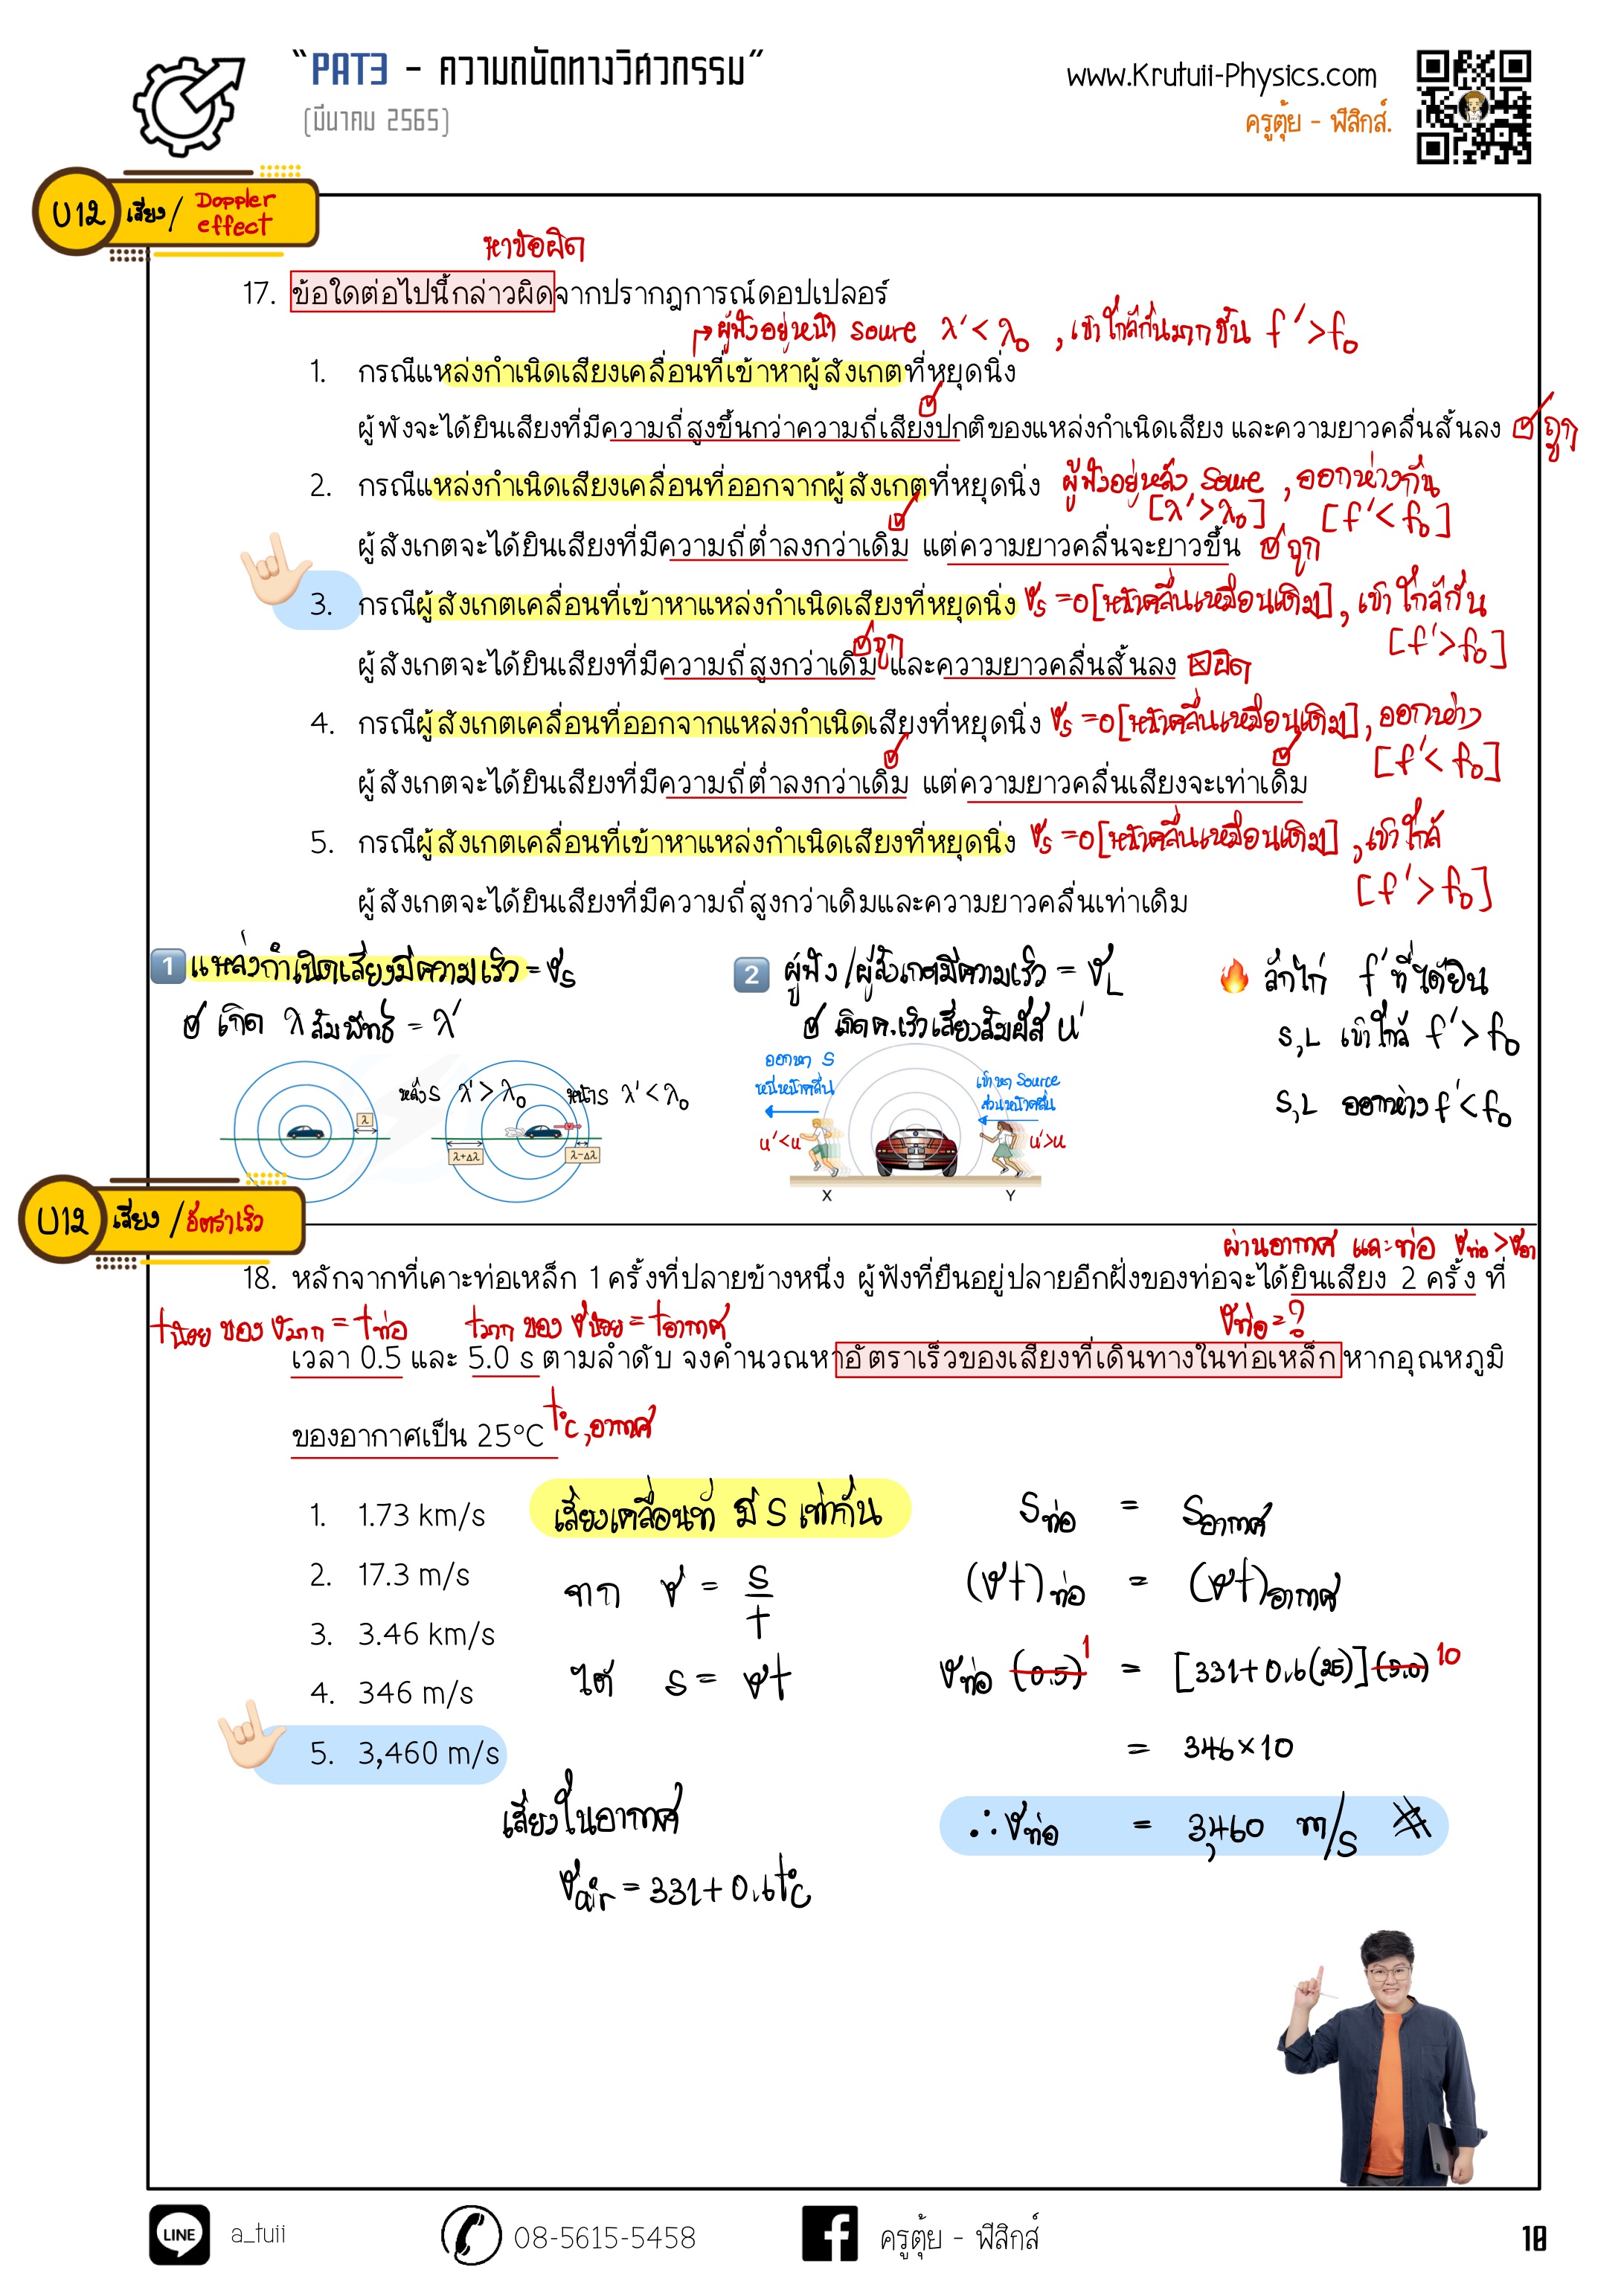 “PAT3 - ความถนัดทางวิศวกรรม”
(มีนาคม 2565)
www.Krutuii-Physics.com
ครูตุ้ย - ฟิสิกส์.
U12 เสียง/ Doppler effect
หาข้อผิด
17. ข้อใดต่อไปนี้กล่าวผิดจากปรากฏการณ์ดอปเปลอร์
↱ผู้ฟังอยู่หน้า Soure λ'<λ₀ , เข้าใกล้กันมากขึ้น f'>f₀
1. กรณีแหล่งกำเนิดเสียงเคลื่อนที่เข้าหาผู้สังเกตที่หยุดนิ่ง
ผู้ฟังจะได้ยินเสียงที่มีความถี่สูงขึ้นกว่าความถี่เสียงปกติของแหล่งกำเนิดเสียง และความยาวคลื่นสั้นลง ☑ถูก
2. กรณีแหล่งกำเนิดเสียงเคลื่อนที่ออกจากผู้สังเกตที่หยุดนิ่ง ผู้ฟังอยู่หลัง Soure , ออกห่างกัน
[λ'>λ₀] [f'<f₀]
ผู้สังเกตจะได้ยินเสียงที่มีความถี่ต่ำลงกว่าเดิม แต่ความยาวคลื่นจะยาวขึ้น ☑ถูก
3. กรณีผู้สังเกตเคลื่อนที่เข้าหาแหล่งกำเนิดเสียงที่หยุดนิ่ง vₛ=0[หน้าคลื่นเหมือนเดิม], เข้าใกล้กัน
☑ถูก [f'>f₀]
ผู้สังเกตจะได้ยินเสียงที่มีความถี่สูงกว่าเดิม และความยาวคลื่นสั้นลง ☒ผิด
4. กรณีผู้สังเกตเคลื่อนที่ออกจากแหล่งกำเนิดเสียงที่หยุดนิ่ง vₛ=0[หน้าคลื่นเหมือนเดิม], ออกห่าง
[f'<f₀]
ผู้สังเกตจะได้ยินเสียงที่มีความถี่ต่ำลงกว่าเดิม แต่ความยาวคลื่นเสียงจะเท่าเดิม
5. กรณีผู้สังเกตเคลื่อนที่เข้าหาแหล่งกำเนิดเสียงที่หยุดนิ่ง vₛ=0[หน้าคลื่นเหมือนเดิม], เข้าใกล้
[f'>f₀]
ผู้สังเกตจะได้ยินเสียงที่มีความถี่สูงกว่าเดิมและความยาวคลื่นเท่าเดิม
1 แหล่งกำเนิดเสียงมีความเร็ว = vₛ
☑ เกิด λ สัมพัทธ์ = λ'
λ
หลังS λ'>λ₀ หน้าS λ'<λ₀
λ+Δλ λ-Δλ
2 ผู้ฟัง/ผู้สังเกตมีความเร็ว = v_L
☑ เกิดค.เร็วเสียงสัมผัส u'
ออกหา S
หนีหน้าคลื่น
เข้าหา Source
สวนหน้าคลื่น
u'<u u'>u
X Y
🔥 ลักไก่ f' ที่ได้ยิน
S,L เข้าใกล้ f'>f₀
S,L ออกห่าง f'<f₀
U12 เสียง/อัตราเร็ว
ผ่านอากาศ และท่อ vท่อ>vอา
18. หลักจากที่เคาะท่อเหล็ก 1 ครั้งที่ปลายข้างหนึ่ง ผู้ฟังที่ยืนอยู่ปลายอีกฝั่งของท่อจะได้ยินเสียง 2 ครั้ง ที่
tน้อย ของ vมาก = tท่อ tมาก ของ vน้อย = tอากาศ vท่อ=?
เวลา 0.5 และ 5.0 s ตามลำดับ จงคำนวณหาอัตราเร็วของเสียงที่เดินทางในท่อเหล็ก หากอุณหภูมิ
ของอากาศเป็น 25°C t°c,อากาศ
1. 1.73 km/s
2. 17.3 m/s
3. 3.46 km/s
4. 346 m/s
5. 3,460 m/s
เสียงเคลื่อนที่ มี S เท่ากัน
จาก v = S/t
ได้ s = vt
เสียงในอากาศ
v air = 331+0.6t°c
Sท่อ = Sอากาศ
(vt)ท่อ = (vt)อากาศ
vท่อ (0.5) 1 = [331+0.6(25)](5.0) 10
= 346×10
∴ vท่อ = 3,460 m/s #
LINE a_tuii
08-5615-5458
ครูตุ้ย - ฟิสิกส์
10